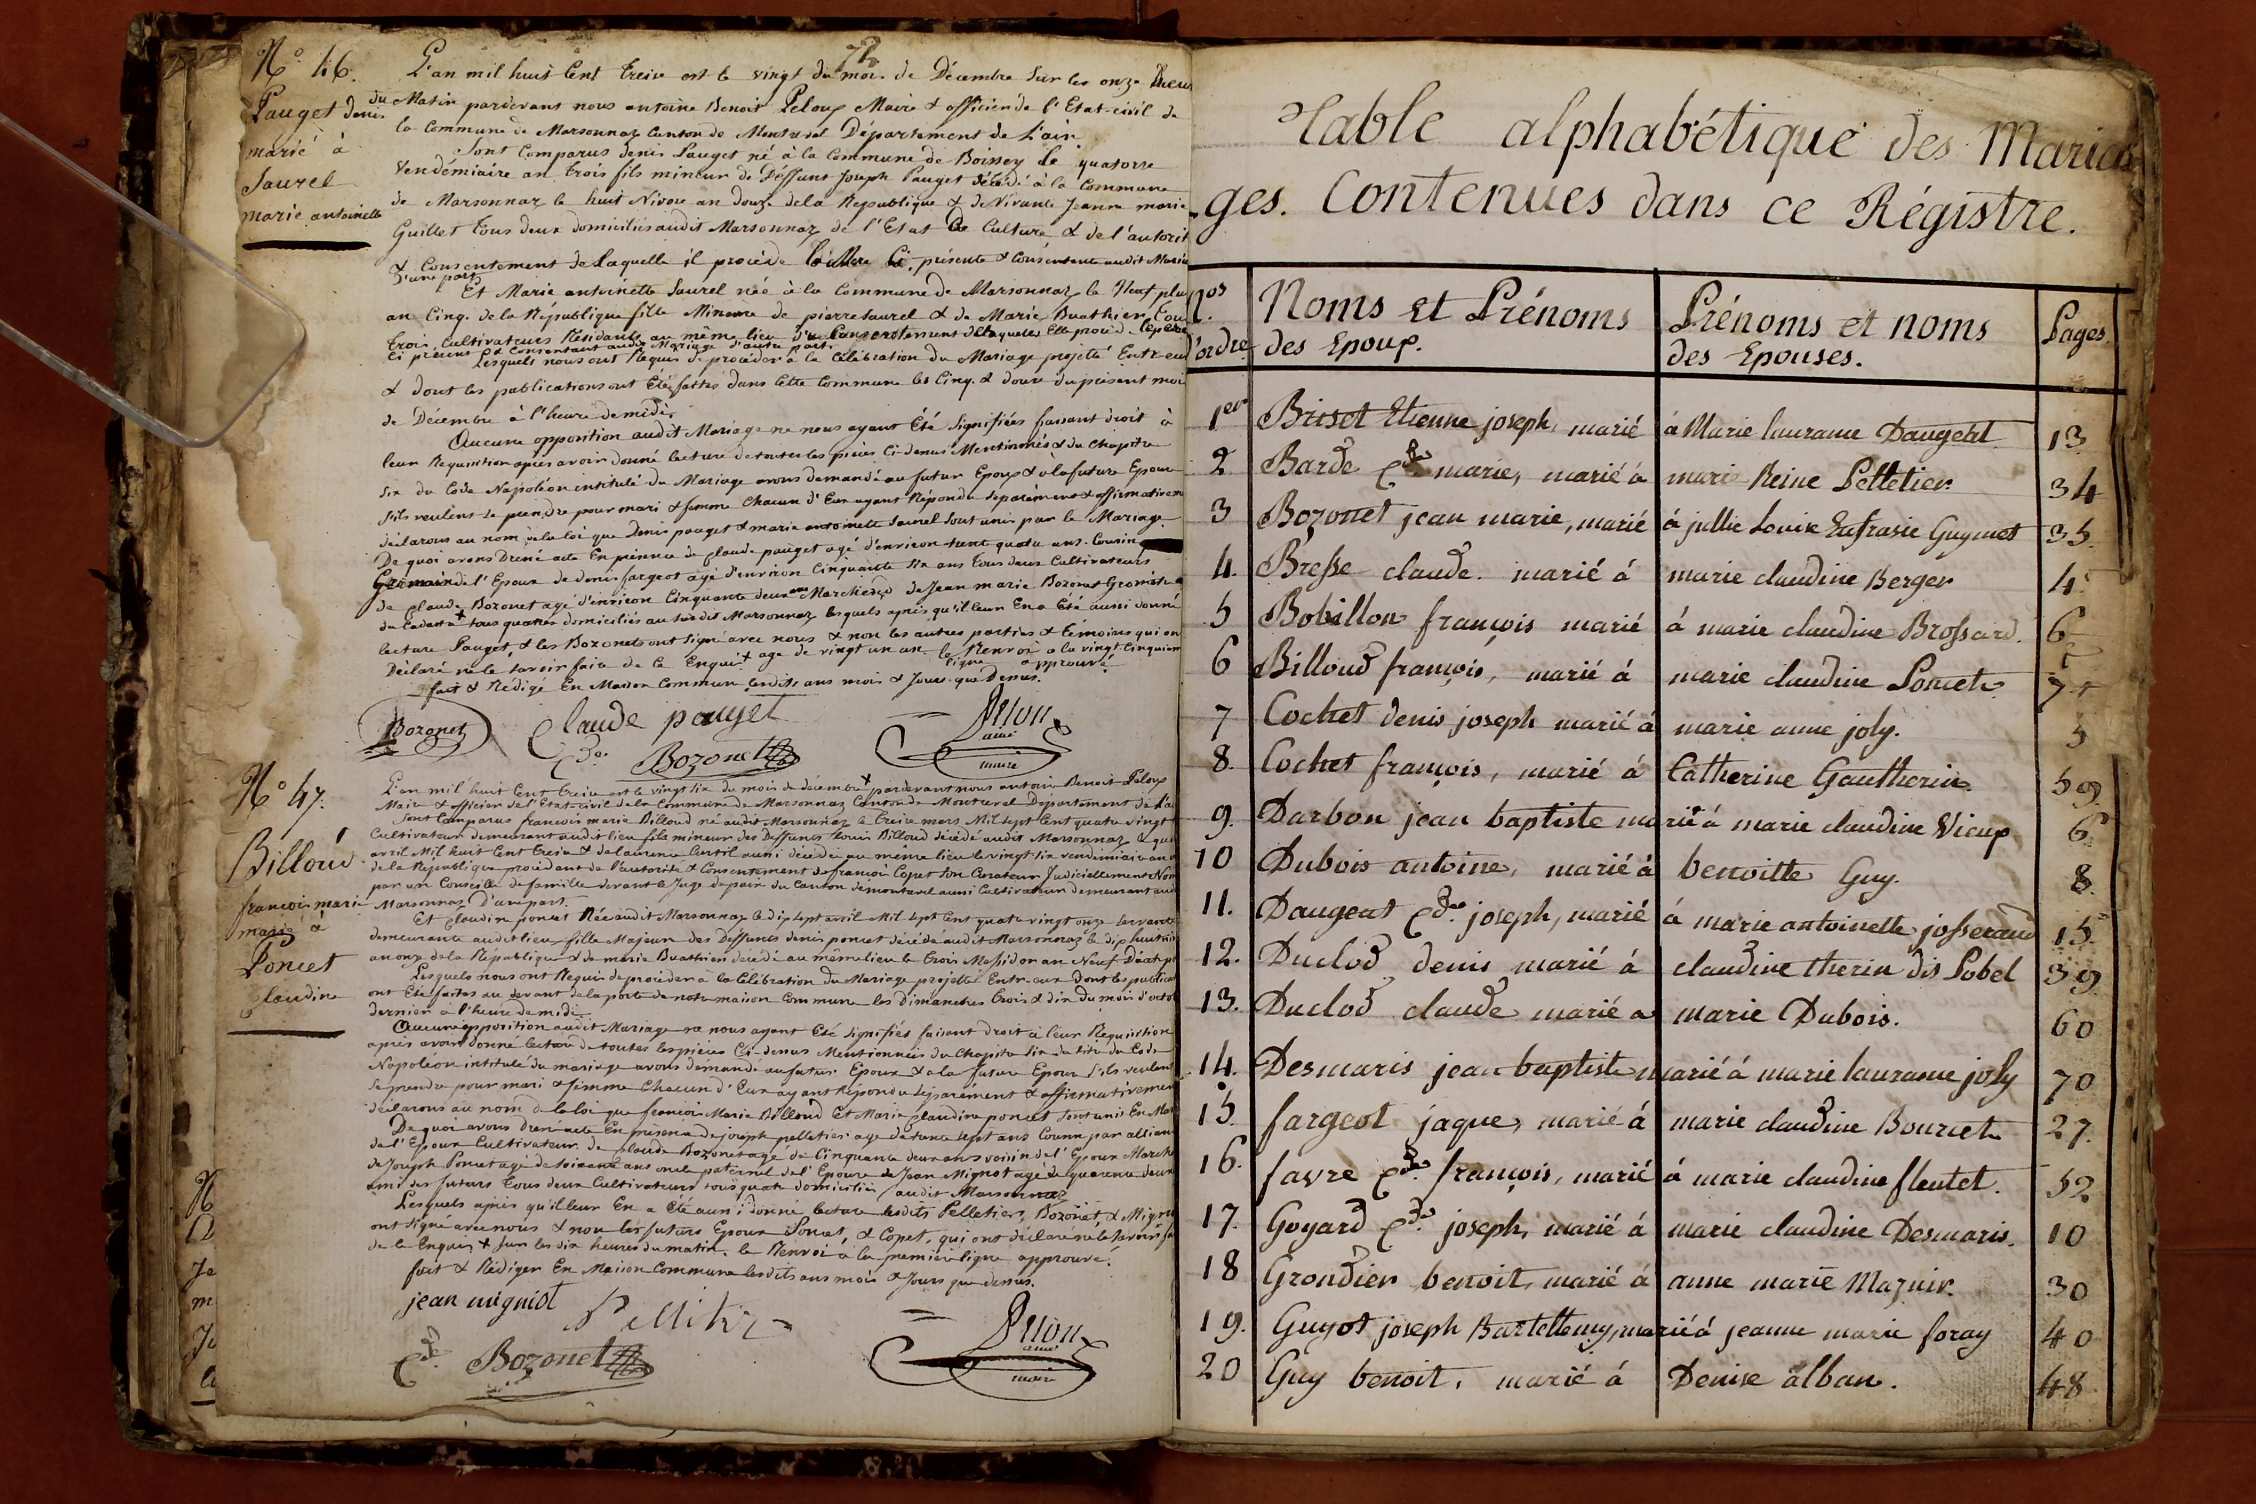 72
N.o 46.
Pauget denis
marié à
Saurel
marie antoinette
L'an mil huit Cent treize est le vingt du mois de Décembre Sur les onze heur
du Matin pardevant nous antoine Benoit Peloux Maire & officier de l'Etat-civil de
la Commune de Marsonnaz Canton de Montrevel Département de L'ain
Sont Comparus denis Pauget né à la Commune de Boissey le quatorze
Vendémiaire an trois fils mineur de Deffunt Joseph Pauget décédé à la Commune
de Marsonnaz le huit Nivose an douze de la Republique & de Vivante Jeanne marie
Guillet tous deux domiciliés audit Marsonnaz de l'Etat de Culture & de l'autorit
& Consentement de laquelle il procède la ditte Ci présente & Consentante audit Maria
d'une part
Et Marie antoinette Saurel née à la Commune de Marsonnaz le Neuf plu
an Cinq. de la République fille Mineure de pierre Saurel & de Marie Buathier tou
trois Cultivateurs Résidants au même lieu du Consentement desquels Elle procède le père
Ci présent & Consentant audit Mariage d'autre part
Lesquels nous ont Requis de procéder à la Célébration du Mariage projetté Entr-eux
& dont les publications ont été faittes dans Cette Commune les Cinq. & douze du présent moi
de Décembre à l'heure de midi
Aucune opposition audit Mariage ne nous ayant été Signifiées faisant droit à
leur Requisition après avoir donné lecture de toutes les pièces Ci-dessus Mentionnés & du Chapitre
Six du Code Napoléon intitulé du Mariage avons demandé au futur Epoux & à la future Epouse
s'ils veulent se prendre pour mari & femme Chacun d'Eux ayant Répondu séparément & affirmativem
déclarons au nom de la loi que Denis pauget & marie antoinette Saurel Sont unis par le Mariage
De quoi avons Dressé acte En présence de Claude pauget agé d'environ trente quatre ans Cousin
Germain de l'Epoux de denis fargeot agé d'environ Cinquante six ans tous deux Cultivateurs
de Claude Bozonet agé d'environ Cinquante deux ans Marchand de Jean marie Bozonet Géomètre
du Cadastre + tous quatre domiciliés au susdit Marsonnaz lesquels après qu'il leur En a été aussi donné
lecture Pauget, & les Bozonets ont signé avec nous & non les autres parties & témoins qui on
Déclaré ne le savoir faire de Ce Enquis + age de vingt un an le Renvoi à la vingt Cinquiem
ligne approuvé
fait & Rédigé En Maison Commune lesdits ans mois & Jours que Dessus.
Bozonet Claude pauget
Cde Bozonet
ainé
maire
N.o 47.
Billoud
francois marie
marié à
Poncet
Claudine
L'an mil huit Cent treize est le vingt six du mois de décembre + pardevant nous antoine Benoit Peloux
Maire & officier de l'Etat-civil de la Commune de Marsonnaz Canton de Montrevel Département de l'ai
Sont Comparus francois marie Billoud né audit Marsonnaz le treize mars Mil Sept Cent quatre vingt
Cultivateur demeurant audit lieu fils mineur des Deffunts Louis Billoud décédé audit Marsonnaz le qua
avril Mil huit Cent treize & de laurence Curtil aussi décédée au même lieu le vingt six vendemiaire an
de la République procédant de l'autorité & Consentement de francois Copet son Curateur Judiciellement Nom
par un Conseille de famille devant le Juge de paix du Canton de montrevel aussi Cultivateur demeurant aud
Marsonnaz D'une part.
Et Claudine poncet Née audit Marsonnaz le dix sept avril Mil Sept Cent quatre vingt onze servante
demeurante audit lieu fille Majeure des Deffunts denis poncet décédé audit Marsonnaz le dix huit niv
an onze de la République & de marie Buathier décédée au même lieu le trois Messidor an Neuf D'aut p
Lesquels nous ont Requis de procéder à la Célébration du Mariage projetté Entr-eux Dont les publicat
ont été faites au devant de la porte de notre maison Commune les Dimanches trois & dix du mois d'octob
dernier à l'heure de midi
Aucune opposition audit Mariage ne nous ayant été signifiées faisant droit à leur Requisition
après avoir donné lecture de toutes les pièces Ci-dessus Mentionnées du Chapitre Six du titre du Code
Napoléon intitulé du mariage avons demandé au futur Epoux & à la future Epouse s'ils veulent
se prendre pour mari & femme Chacun d'Eux ayant Répondu séparément & affirmativemen
déclarons au nom de la loi que francois Marie Billoud Et Marie Claudine poncet sont unis En Mar
De quoi avons Dressé acte En présence de joseph pelletier age de trente sept ans Cousin par allian
de l'Epoux Cultivateur de Claude Bozonet agé de Cinquante deux ans voisin de l'Epoux Marcha
de Joseph Poncet agé de soixante ans oncle paternel de l'Epouse de Jean Mignot agé de quarente deux
ami des futurs tous deux Cultivateurs tous quatre domiciliés audit Marsonnaz
Lesquels après qu'il leur En a été aussi donné lecture lesdits Pelletier, Bozonet, & Migno
ont signé avec nous & non les futurs Epoux Poncet, & Copet, qui ont déclaré ne le savoir fa
de Ce Enquis + sur les dix heures du matin. le Renvoi à la première ligne approuvé.
fait & Rédiger En Maison Commune lesdits ans mois & Jours que dessus.
jean migniot Pelletier
Cde Bozonet
ainé
maire
Table alphabétique des Maria
ges. Contenues dans ce Régistre.
nos d'ordre Noms et Prénoms des Epoux. Prénoms et noms des Epouses. Pages
1er Briset Etienne joseph, marié á Marie lauranne Daugeat 13
2 Barde Cde marie, marié á marie Reine Pelletier 34
3 Bozonet jean marie, marié á jullie Louise Eufrasie Guymet 35.
4. Bresse claude. marié á marie claudine Berger 4.
5 Bobillon françois marié á marie claudine Brossard. 6
6 Billoud françois, marié á marie claudine Poncet 7
7 Cochet denis joseph marié á marie anne joly. 5
8. Cochet françois, marié á Catherine Gautherin 59.
9. Darbon jean baptiste marié á marie claudine Vieux 6
10 Dubois antoine, marié á benoitte Guy. 8
11. Daugeat Cde joseph, marié á marie antoinette josserand 15.
12. Duclod denis marié á claudine therin dis Lobel 39.
13. Duclod claude marié a marie Dubois. 60
14. Desmaris jean baptiste marié á marie lauranne joly 70
15. fargeot jaque, marié á marie claudine Bourcet 27.
16. favre Cde françois, marié á marie claudine fleutet. 52
17. Goyard Cde joseph, marié á marie claudine Desmaris. 10
18 Grondier benoit, marié á anne marie Mazuir. 30
19. Guyot joseph Bartellemy, marié á jeanne marie foray 40
20 Guy benoit, marié á Denise alban. 48